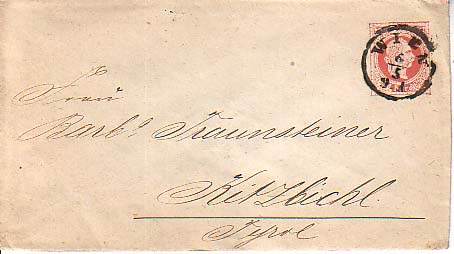 WIEN
6
5
Frau
Barb. Traunsteiner
Kitzbichl.
Tyrol